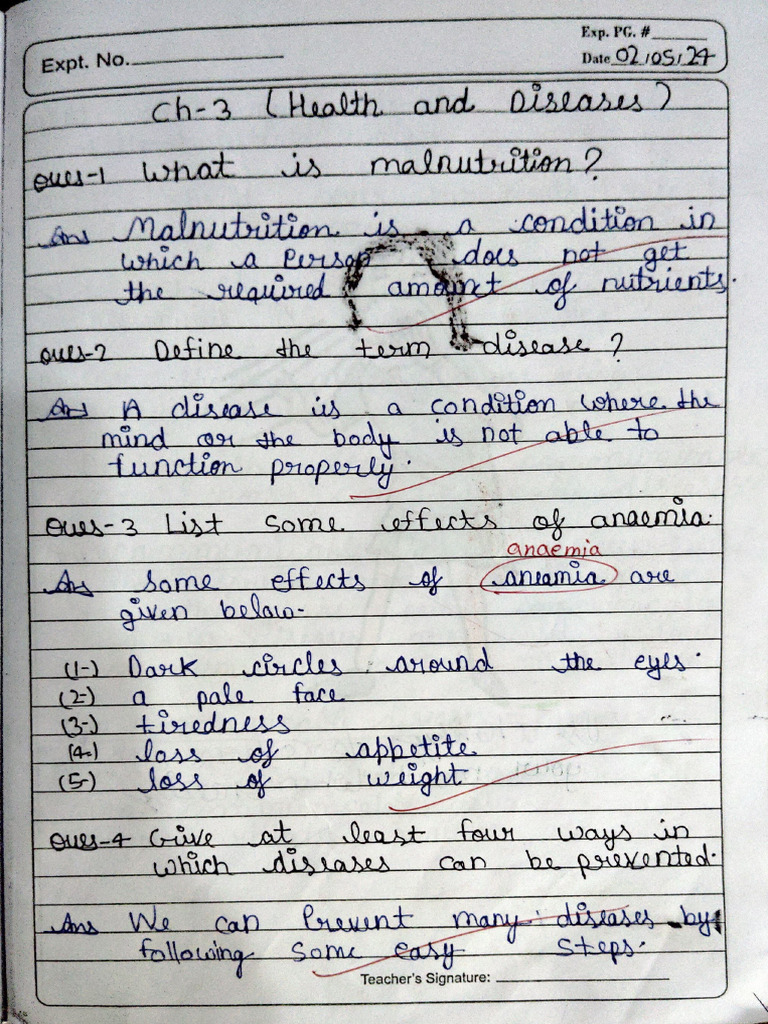 Exp. PG. #
Expt. No.
Date 02/05/24
Ch-3 (Health and Diseases)
Ques-1 What is malnutrition?
Ans Malnutrition is a condition in
which a Person does not get
the required amount of nutrients.
Ques-2 Define the term disease?
Ans A disease is a condition where the
mind or the body is not able to
function properly.
Ques-3 List some effects of anaemia.
anaemia
Ans Some effects of aneamia are
given below-
(1-) Dark circles around the eyes.
(2-) a pale face
(3-) tiredness
(4-) loss of appetite
(5-) loss of weight
Ques-4 Give at least four ways in
which diseases can be prevented.
Ans We can Prevent many diseases by
following some easy steps.
Teacher's Signature: